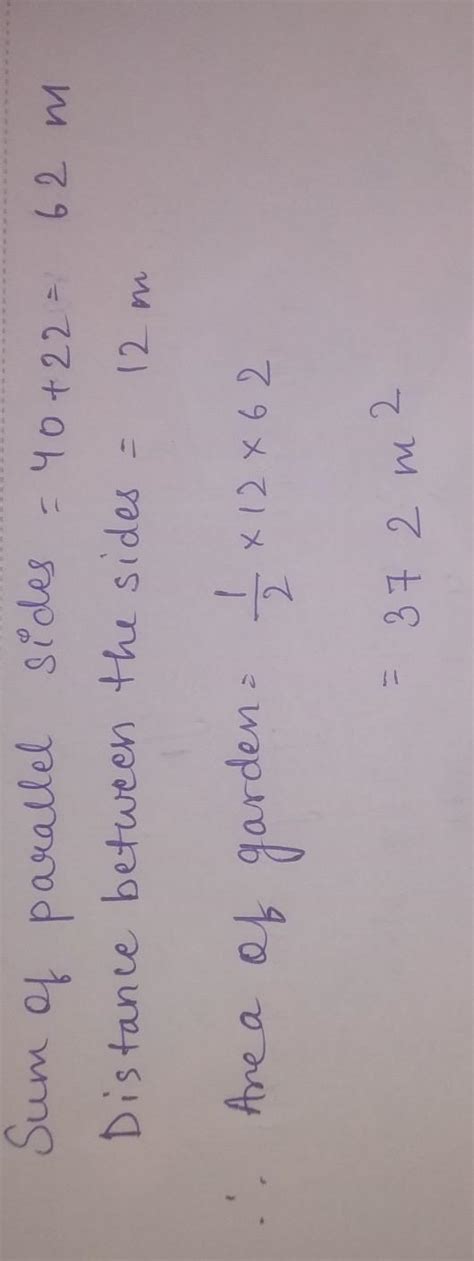 Sum of parallel sides = 40 + 22 = 62 m
Distance between the sides = 12 m
∴ Area of garden = 1/2 × 12 × 62
= 372 m²